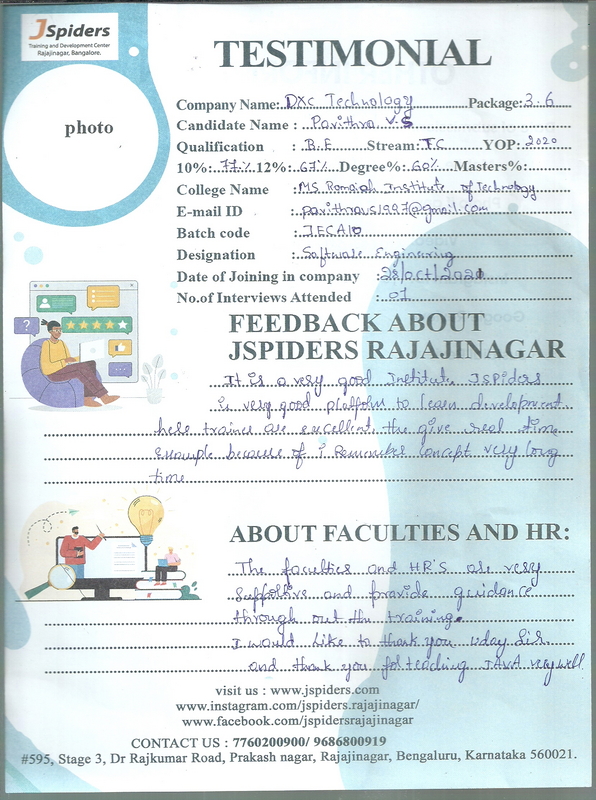 JSpiders
Training and Development Center
Rajajinagar, Bangalore.
TESTIMONIAL
photo
Company Name: DXC Technology Package: 3.6
Candidate Name : Pavithra V.S
Qualification : B.E Stream: TC YOP: 2020
10%: 77% 12%: 67% Degree%: 60% Masters%:
College Name : MS Ramaiah Institute of Technology
E-mail ID : pavithravs1997@gmail.com
Batch code : JECA10
Designation : Software Engineering
Date of Joining in company : 28/oct/2021
No.of Interviews Attended : 01
FEEDBACK ABOUT
JSPIDERS RAJAJINAGAR
It is a very good Institute, JSPIDERS
is very good platform to learn development.
here trainer are excellent, the give real time
example because of i Remember concept very long
time
ABOUT FACULTIES AND HR:
The faculties and HR'S are very
Supportive and provide guidance
through out the training.
I would like to thank you Uday Sir
and thank you for teaching JAVA very well
visit us : www.jspiders.com
www.instagram.com/jspiders.rajajinagar/
www.facebook.com/jspidersrajajinagar
CONTACT US : 7760200900/ 9686800919
#595, Stage 3, Dr Rajkumar Road, Prakash nagar, Rajajinagar, Bengaluru, Karnataka 560021.